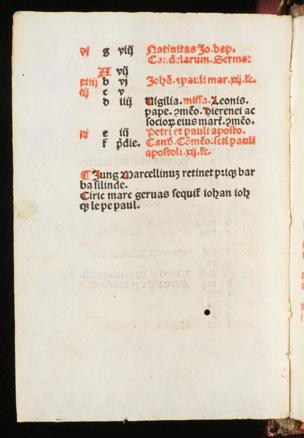 vj g viij Natiuitas Jo. bap.
Cādelarum. Setm̄s:
A vij
xiiij b vj Johā. ⁊ pauli mar. xij. lc.
iij c v
d iiij Vigilia. missa. Leonis.
pape. ꝯmēō. Hierenei ac
socioꝝ eius mart. ꝯmēō.
xj e iij Petri et pauli aposto.
f p̄die. Cand. Cōmēō. scī pauli
apostoli. xij. lc.
¶ Jung Marcellinus retinet ptiqꝫ bar
ba silinde.
Ciric marc geruas sequit̄ iohan ioh̄
qꝫ le pe paul.